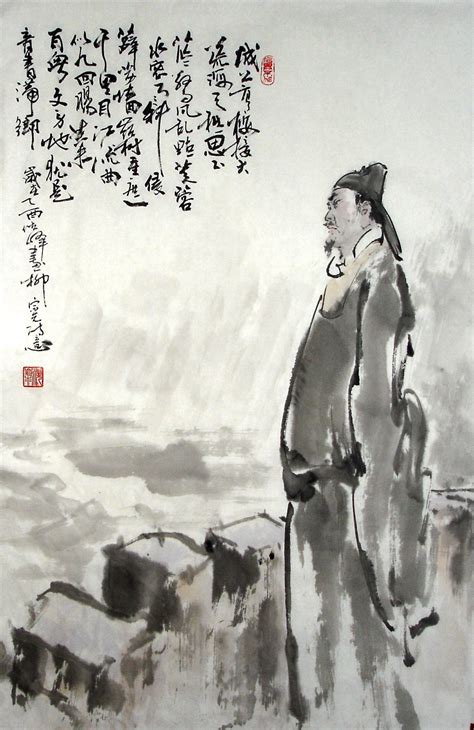 城上高楼接大
荒海天愁思正
茫惊风乱飐芙蓉
水密雨斜侵
薜荔墙岭树重遮
千里目江流曲
似九回肠共来
百粤文身地犹是
音书滞乡
岁在乙酉峰画柳宗元诗意